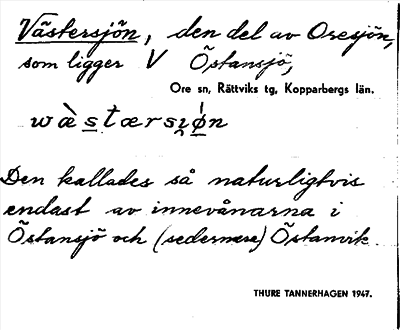 Västersjön, den del av Oresjön,
som ligger V Östansjö,
Ore sn, Rättviks tg, Kopparbergs län.
wæ̀s̲tærsı̨ǿn
Den kallades så naturligtvis
endast av innevånarna i
Östansjö och (sedermera) Östanvik.
THURE TANNERHAGEN 1947.